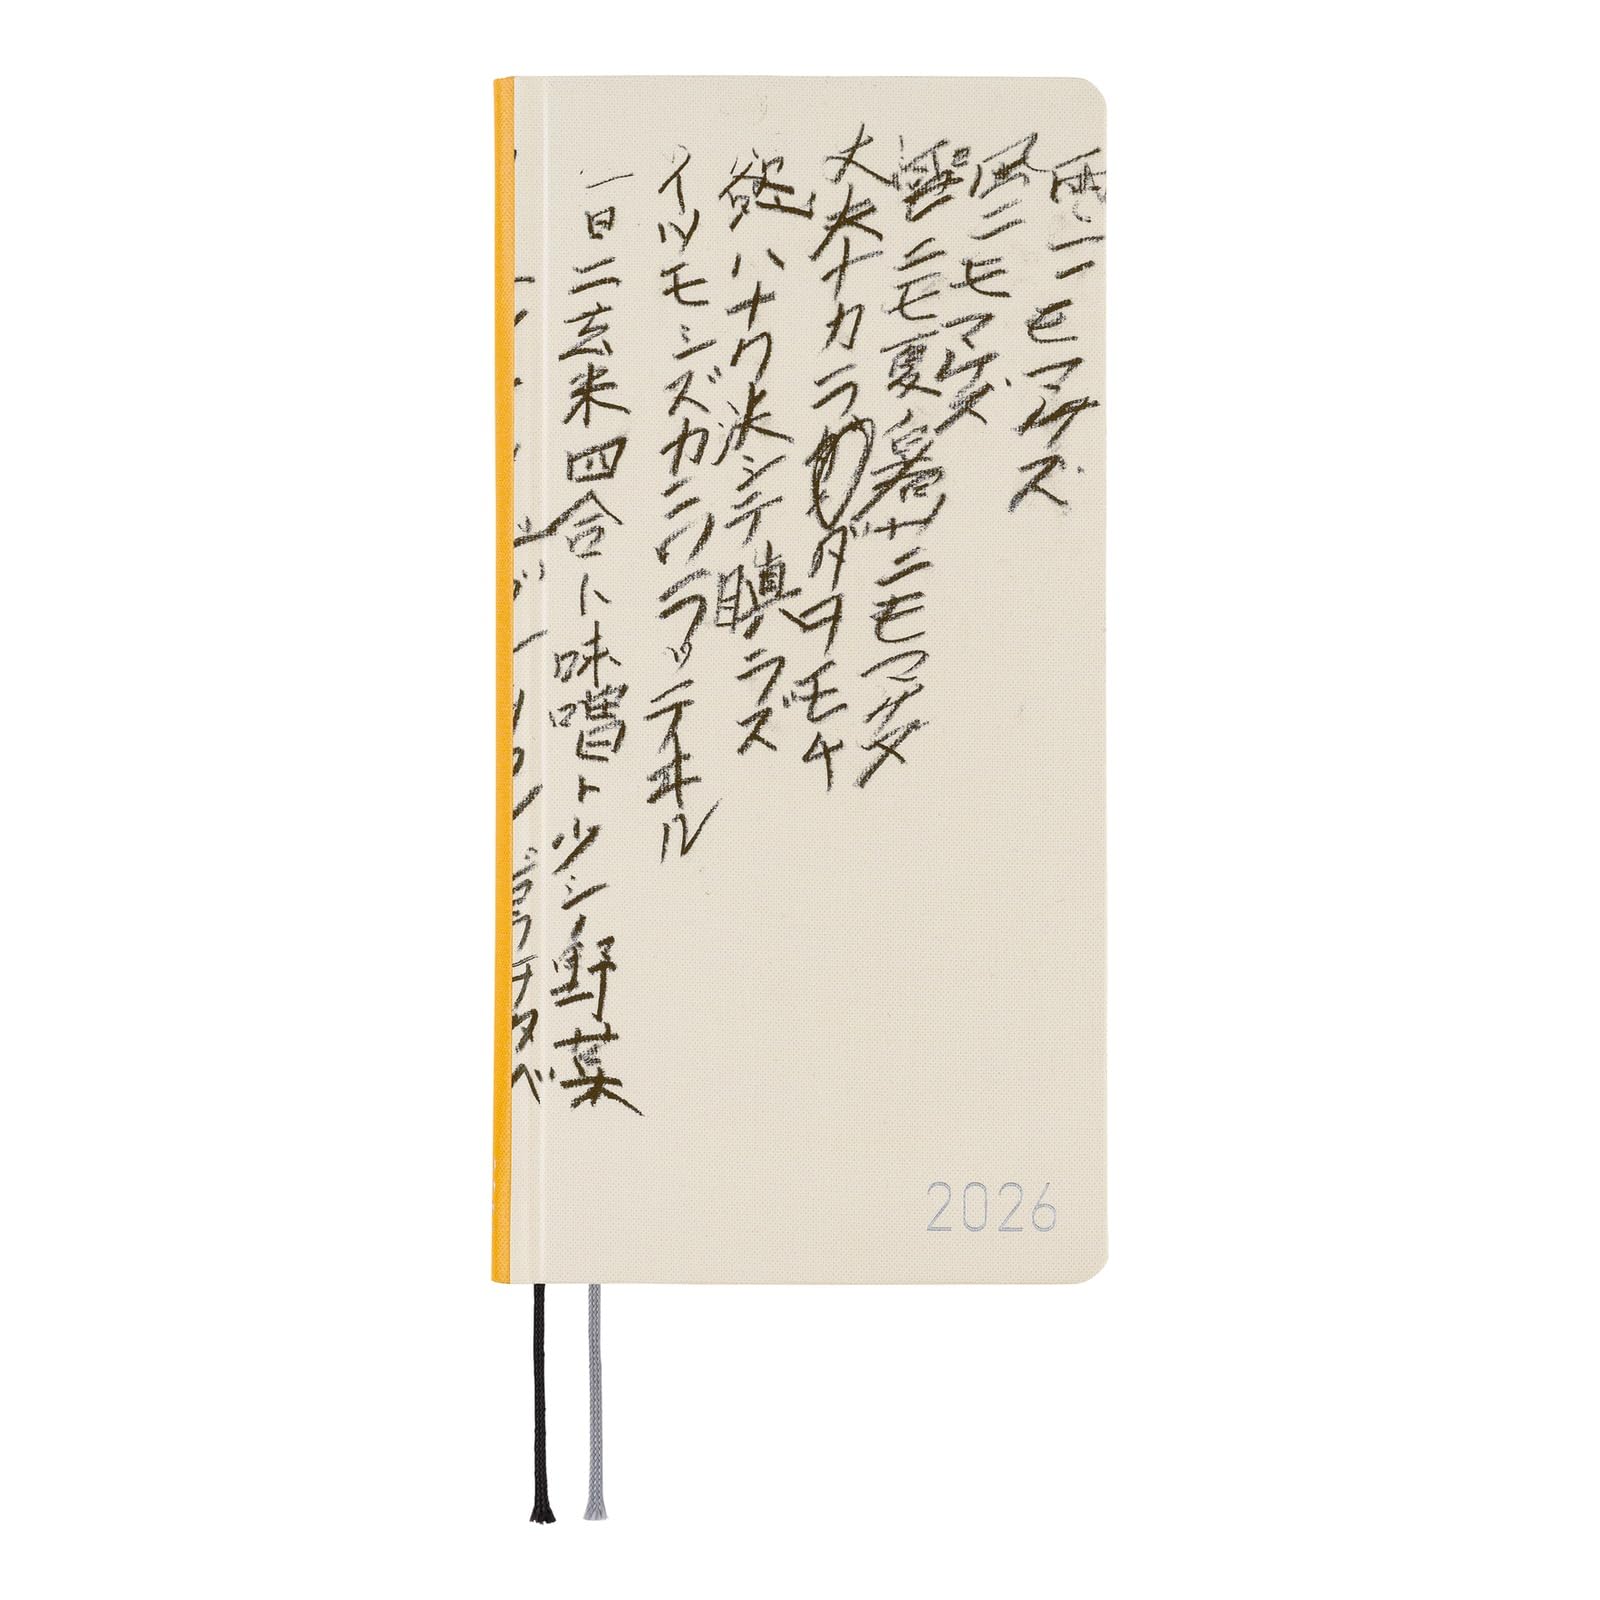 雨ニモマケズ
風ニモマケズ
雪ニモ夏ノ暑サニモマケヌ
丈夫ナカラダヲモチ
慾ハナク決シテ瞋ラズ
イツモシズカニワラッテヰル
一日ニ玄米四合ト味噌ト少シノ野菜
2026